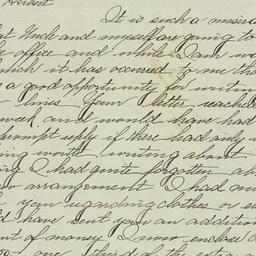 It is such a
at Uncle and myself are going to
office and while I am
it has occurred to me
a good opportunity for writing
lines. Your letter reached
week and would have had
prompt reply if there had only
ing worth writing about
I had quite forgotten
arrangement I had
you regarding clothes or
have sent you an addition
of money. I now enclose